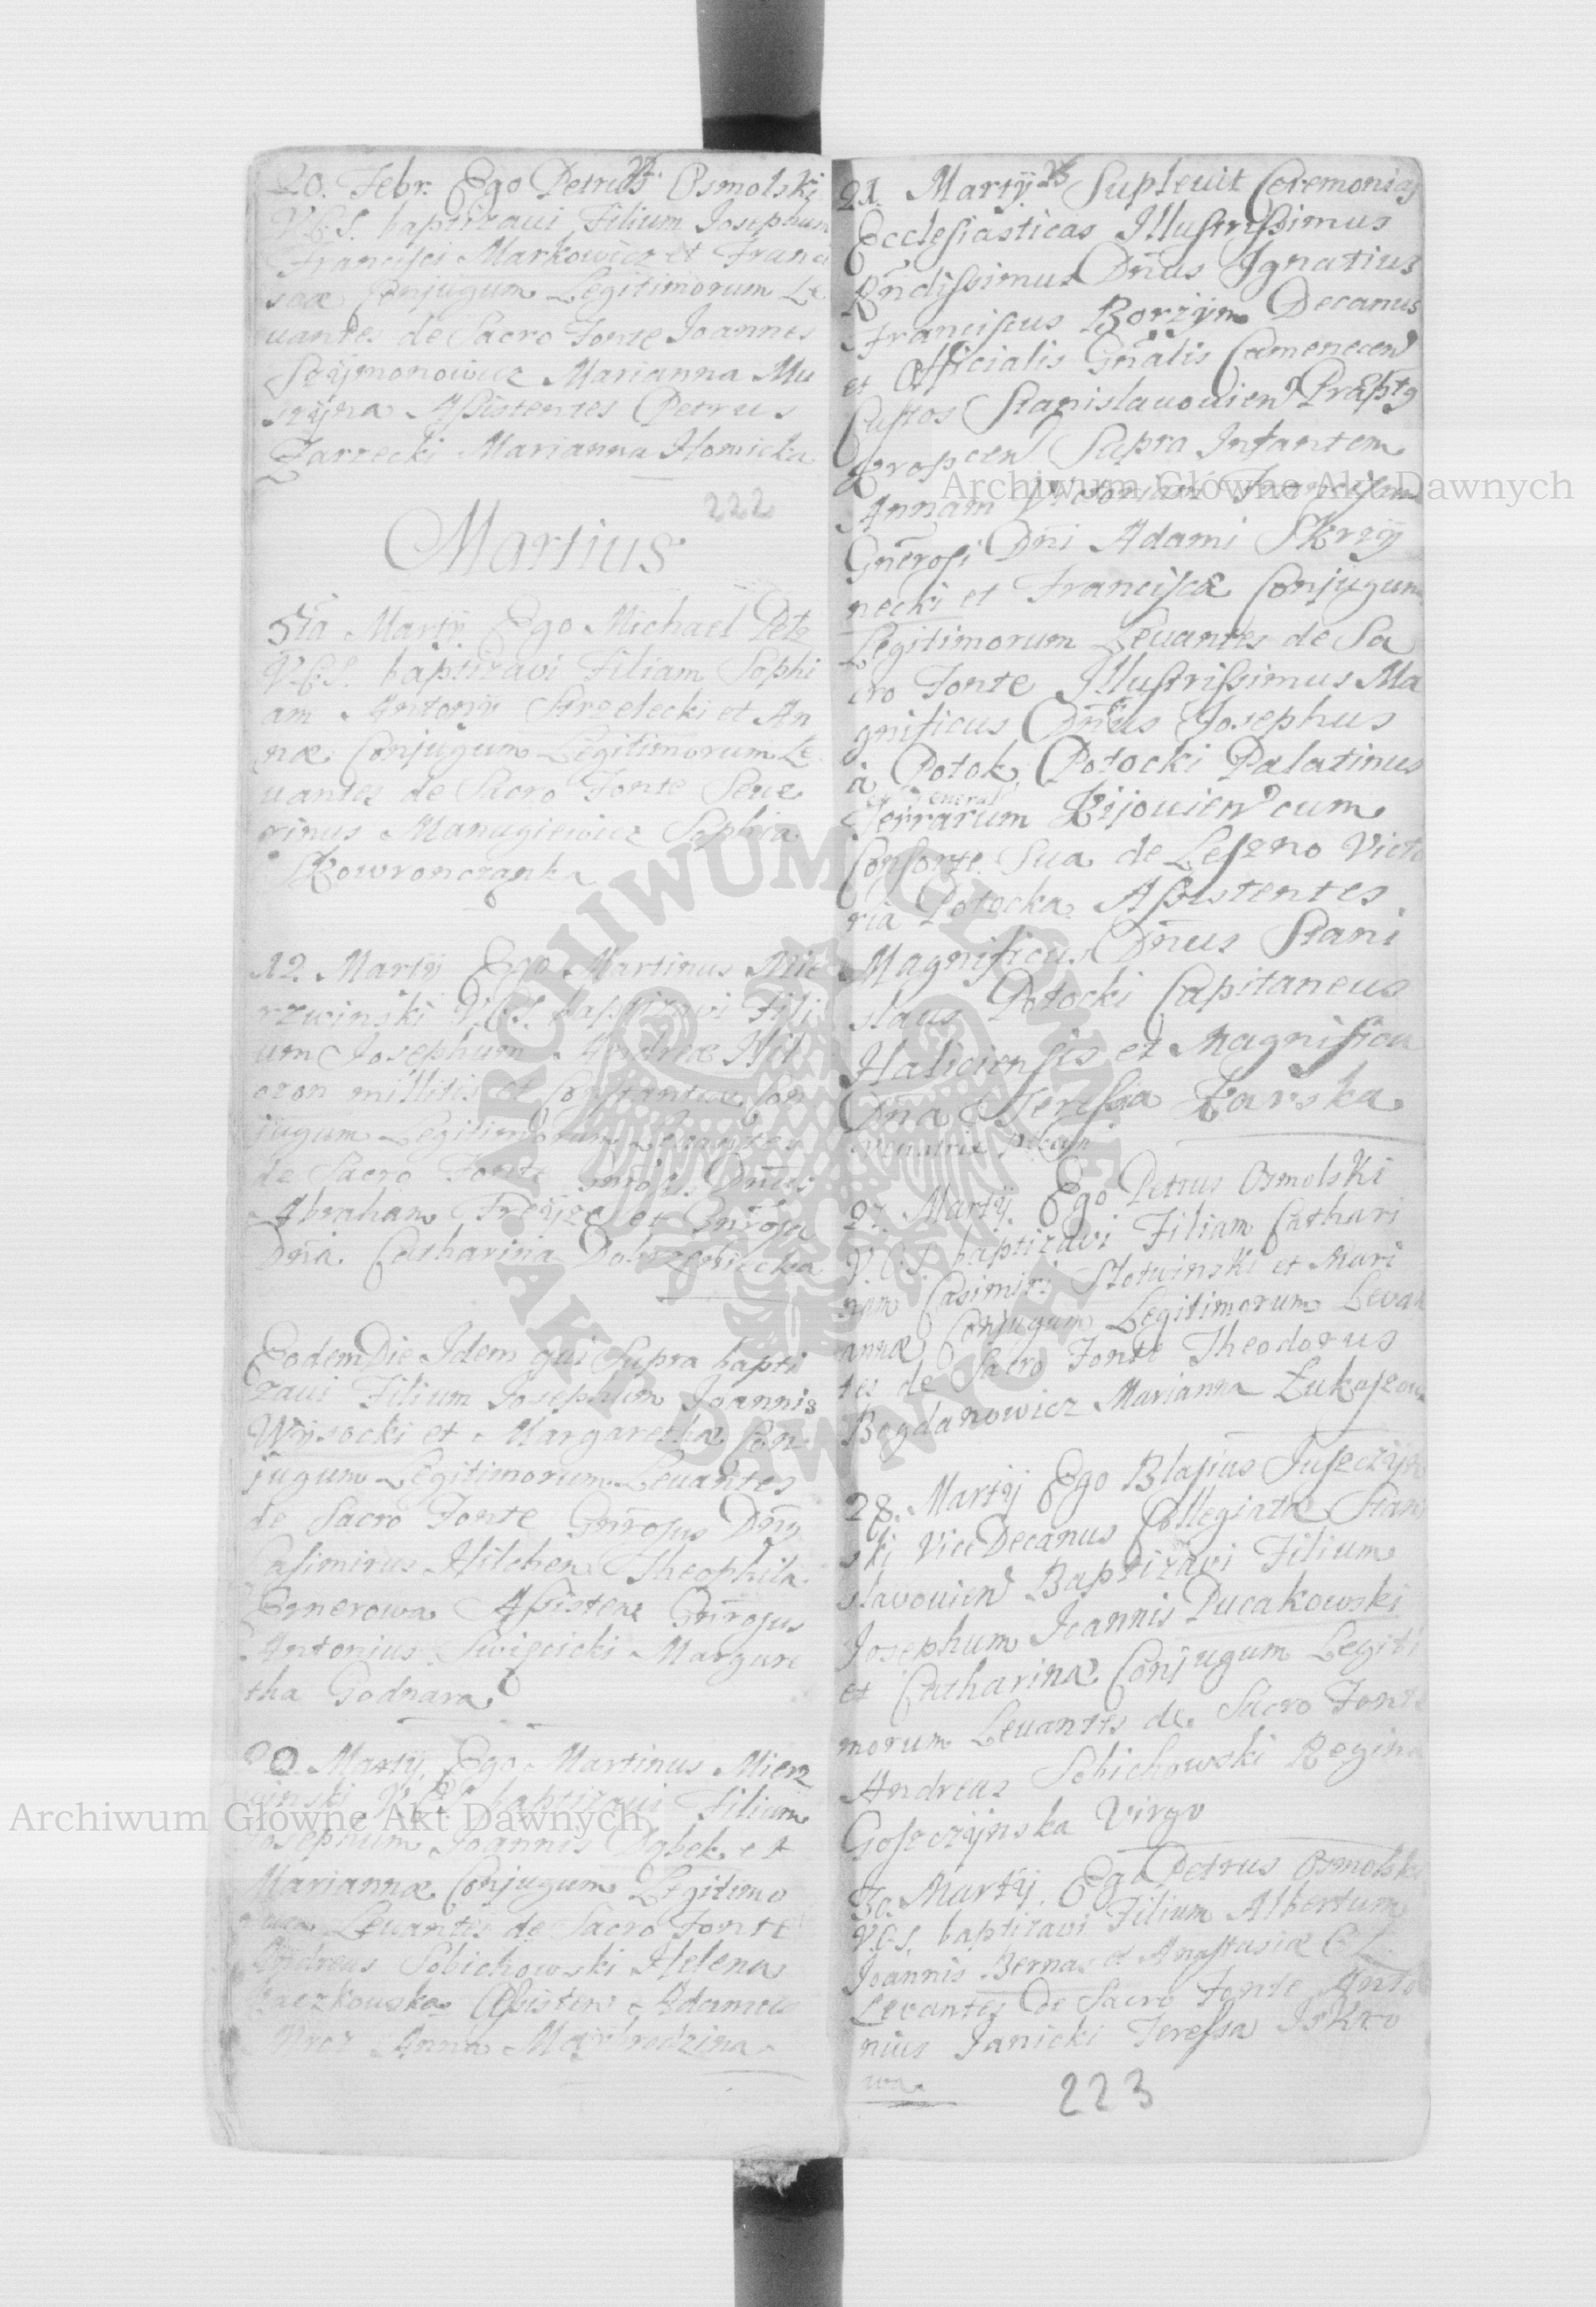 20. Febr. Ego Petrus Osmolski
V.C.S. baptizavi Filium Josephum
Francisci Markowicz et Franci
scae Conjugum Legitimorum Le
uantes de Sacro Fonte Joannes
Szÿmonowicz Marianna Mu
Assistentes Petrus
Zarzecki Marianna
222
Martius
5ta Martÿ Ego Michael Petz
V.C.S. baptizavi Filiam Sophi
am Antonÿ Strzelecki et An
nae Conjugum Legitimorum Le
uantes de Sacro Fonte Seue
rinus Manugiewicz Sophia
Skowronczanka
12. Martÿ Ego Martinus Mie
rzwinski V.C.S. baptizavi Fili
um Josephum Andreae
millitis et Constantiae Con
jugum Legitimorum Leuantes
de Sacro Fonte Gnrosus Dnus
Abraham et Gnrosa
Dna Catharina
Eodem Die Idem qui Supra bapti
zaui Filium Josephum Joannis
Wÿsocki et Margarethae Con
jugum Legitimorum Leuantes
de Sacro Fonte Gnrosus Dnus
Casimirus Hilchen Theophila
Eznerowa Assisten Gnrosus
Antonius Swięcicki Margare
tha Godnara
20 Martÿ Ego Martinus Mierz
winski V.C.S. baptizaui Filium
Josephum Joannis Dąbek et
Mariannae Conjugum Legitimo
rum Leuantes de Sacro Fonte
Andreas Sobichowski Helena
Raczkowska Assisten
Anna
21. Martÿ Supleuit Ceremonias
Ecclesiasticas Illustrissimus
Rndissimus Dnus Ignatius
Franciscus Borzÿm Decanus
et Officialis Gnalis Camenecen
Custos Stanislauouien
Supra Infantem
Annam Victoriam
Gnerosi Dni Adami Skrzÿ
necki et Franciscae Conjugum
Legitimorum Leuantes de Sa
cro Fonte Illustrissimus Ma
gnificus Dnus Josephus
à Potok Potocki Palatinus
et General
Terrarum Kijouien cum
Consorte Sua de Leszno Victo
ria Potocka Assistentes
Magnificus Dnus Stani
slaus Potocki Capitaneus
Haliciensis et Magnifica
Dna Teressia Łarska
27. Martÿ Ego Petrus Osmolski
V.C.S. baptizavi Filiam Cathari
nam Casimiri Slotwinski et Mari
annae Conjugum Legitimorum Levan
tes de Sacro Fonte Theodorus
Bogdanowicz Marianna Łukaszow
28. Martÿ Ego Blasius Juszczÿn
ski ViceDecanus Collegiatae Stani
slavouien Baptizavi Filium
Josephum Joannis Pucakowski
et Catharinae Conjugum Legiti
morum Leuantes de Sacro Fonte
Andreas Sobichowski Regina
Goszczÿnska Virgo
30. Martÿ. Ego Petrus Osmolski
V.C.S. baptizavi Filium Albertum
Joannis Bernas et Anastasiae C.L.
Levantes De Sacro Fonte Anto
nius Janicki Teressa
223
Archiwum Główne Akt Dawnych
Archiwum Główne Akt Dawnych
ARCHIWUM GŁÓWNE
AKT DAWNYCH